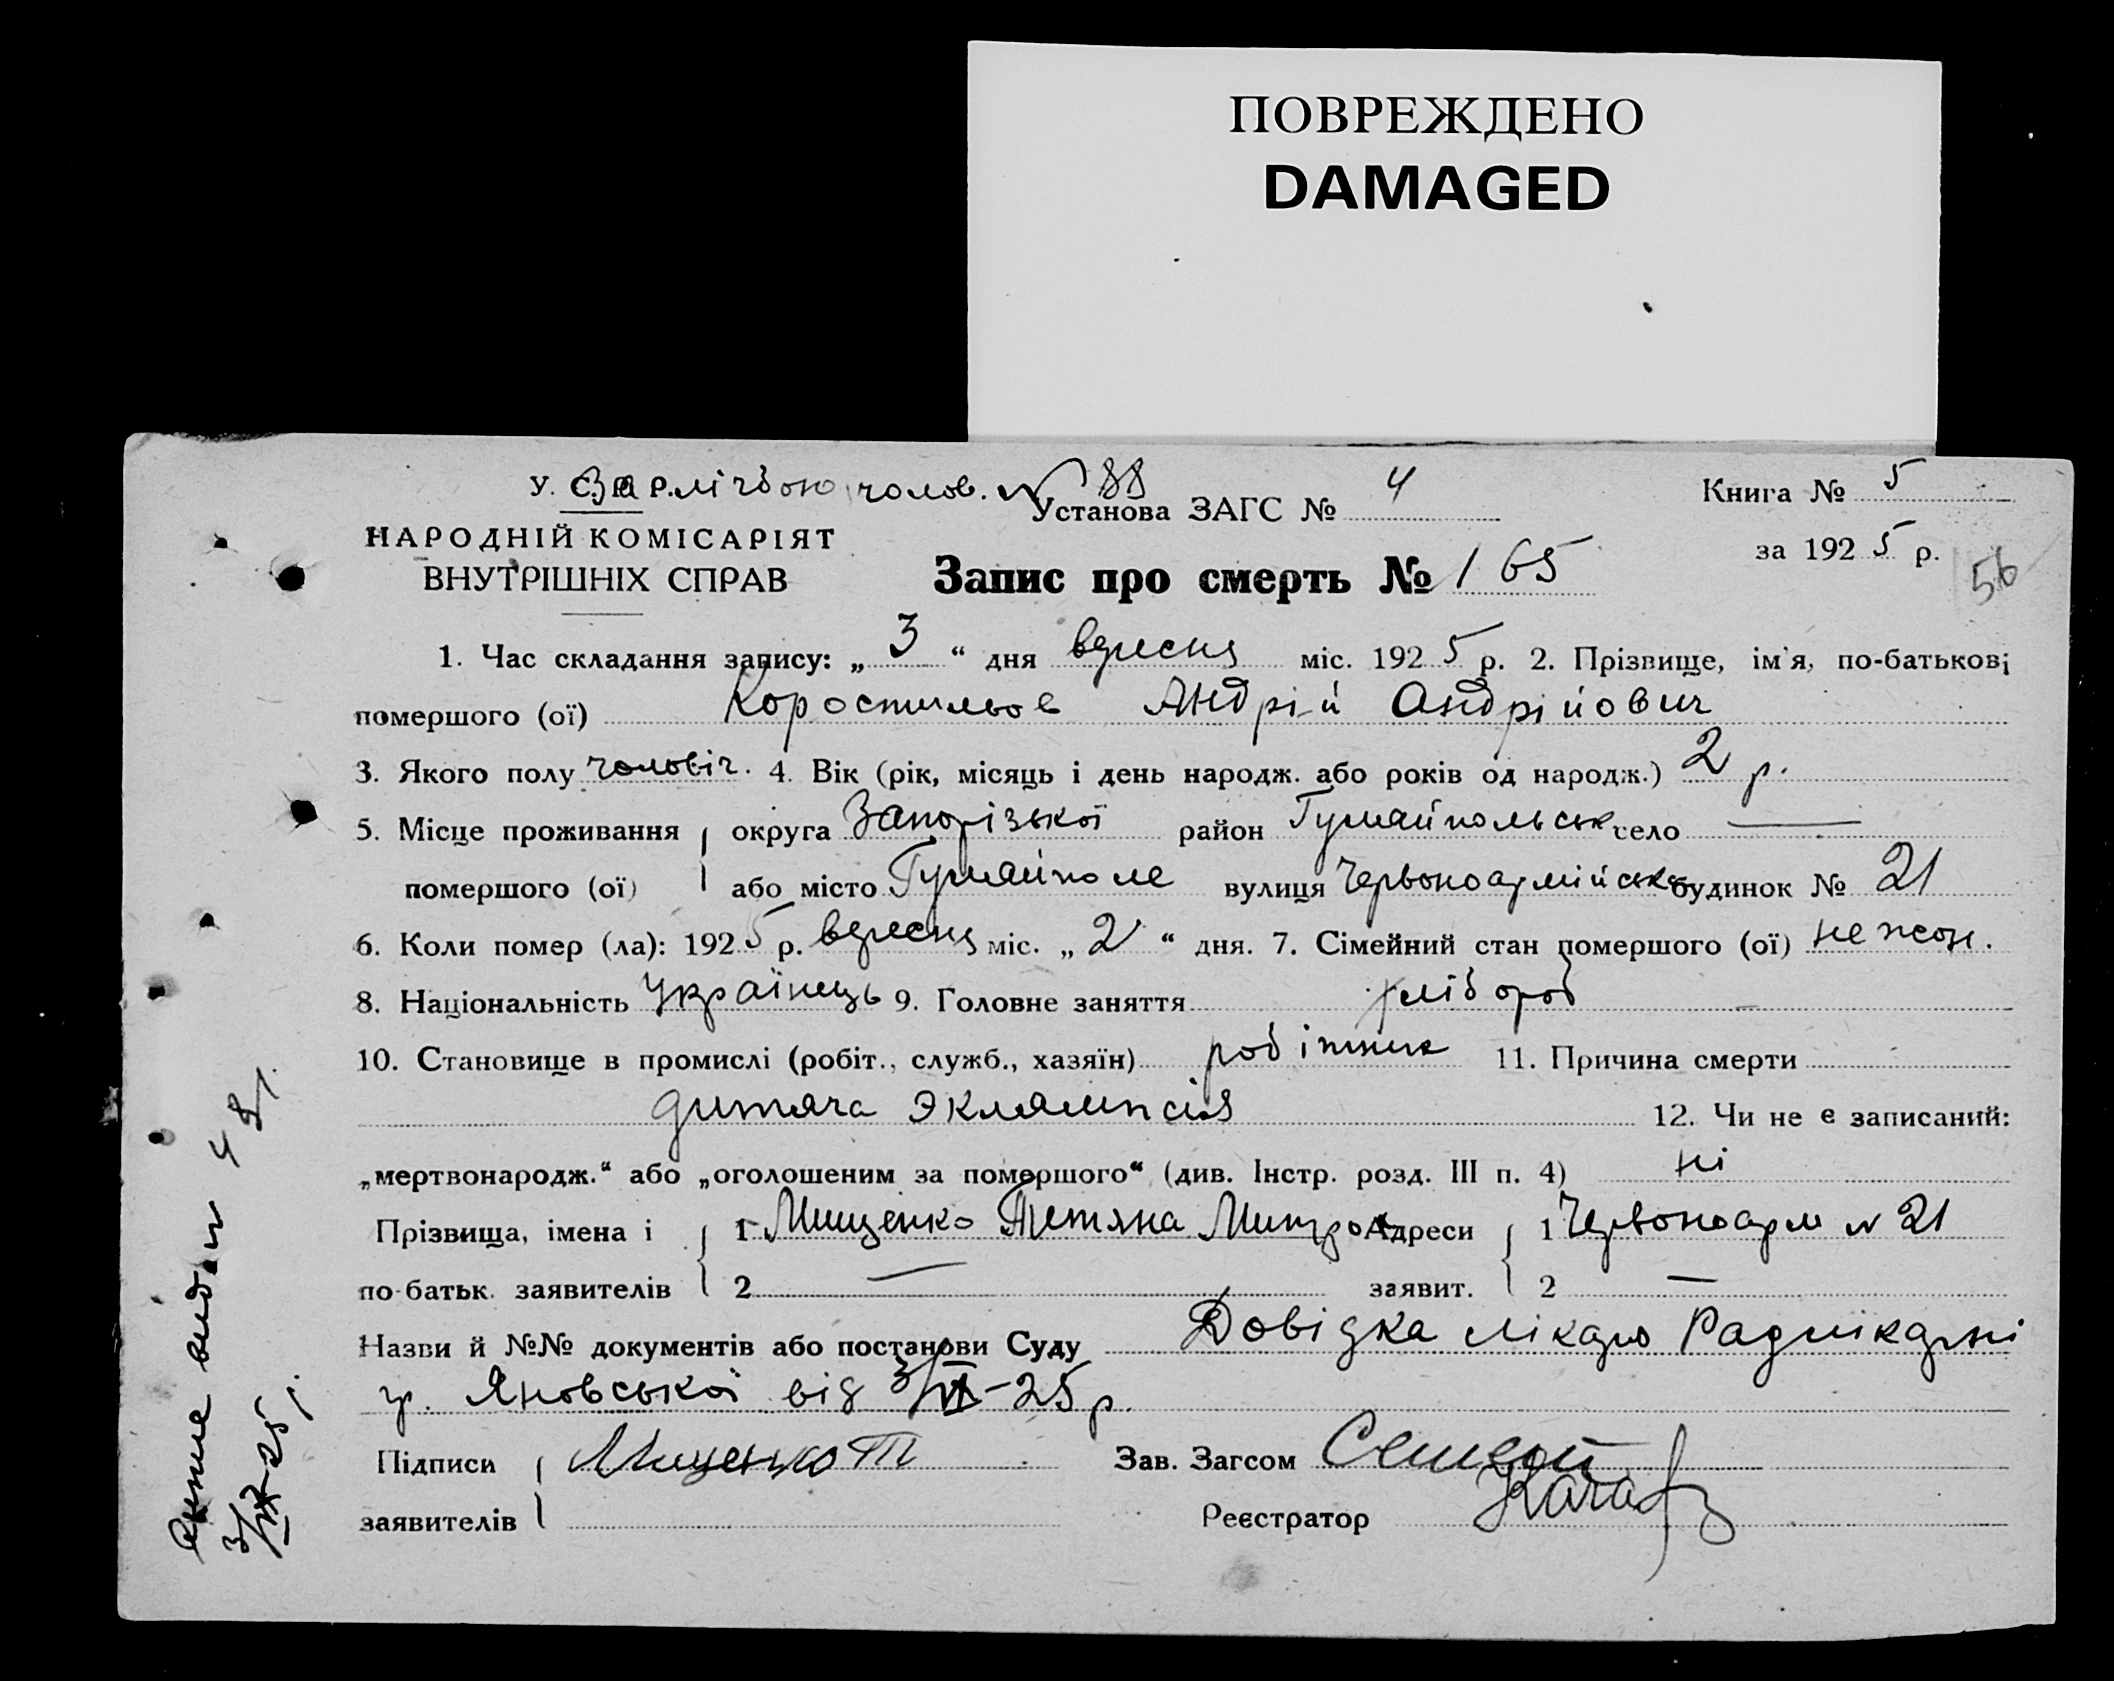 ПОВРЕЖДЕНО
DAMAGED
У. С. Р. Р. За лічбою чолов. № 88
Установа ЗАГС № 4
Книга № 5
за 1925 р.
56
НАРОДНІЙ КОМІСАРІЯТ
ВНУТРІШНІХ СПРАВ
Запис про смерть № 165
1. Час складання запису: „ 3 “ дня вересня міс. 1925 р. 2. Прізвище, ім'я, по-батькові
помершого (ої) Коростильов Андрій Андрійович
3. Якого полу чоловіч. 4. Вік (рік, місяць і день народж. або років од народж.) 2 р.
5. Місце проживання округа Запорізької район Гуляйпольськ село —
помершого (ої) або місто Гуляйполе вулиця Червоноармійська будинок № 21
6. Коли помер (ла): 1925 р. вересня міс. „ 2 “ дня. 7. Сімейний стан помершого (ої) не жон.
8. Національність Українець 9. Головне заняття хлібороб
10. Становище в промислі (робіт., служб., хазяїн) робітник 11. Причина смерти
дитяча эклямпсія 12. Чи не є записаний:
„мертвонародж.“ або „оголошеним за помершого“ (див. Інстр. розд. III п. 4) ні
Прізвища, імена і 1 Мищенко Тетяна Митроф Адреси 1 Червоноарм № 21
по-батьк. заявителів 2 — заявит. 2 —
Назви й №№ документів або постанови Суду Довідка лікаря Радлікарні
гр. Яновської від 3/IX-25 р.
Підписи Мищенко Т Зав. Загсом
заявителів Реєстратор
3/IX-25 р.